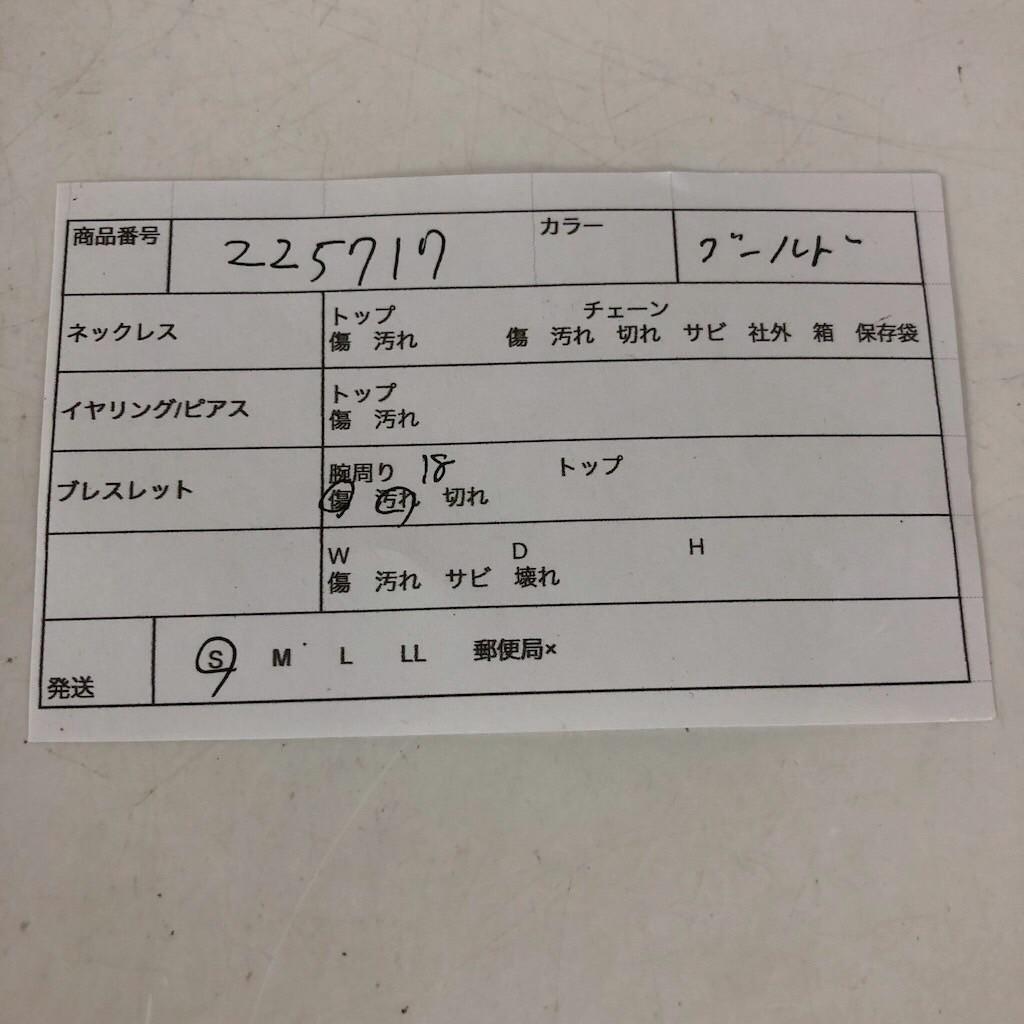 商品番号 225717 カラー ゴールド
ネックレス トップ チェーン
傷 汚れ 傷 汚れ 切れ サビ 社外 箱 保存袋
イヤリング/ピアス トップ
傷 汚れ
ブレスレット 腕周り 18 トップ
傷 汚れ 切れ
W D H
傷 汚れ サビ 壊れ
発送 S M L LL 郵便局×